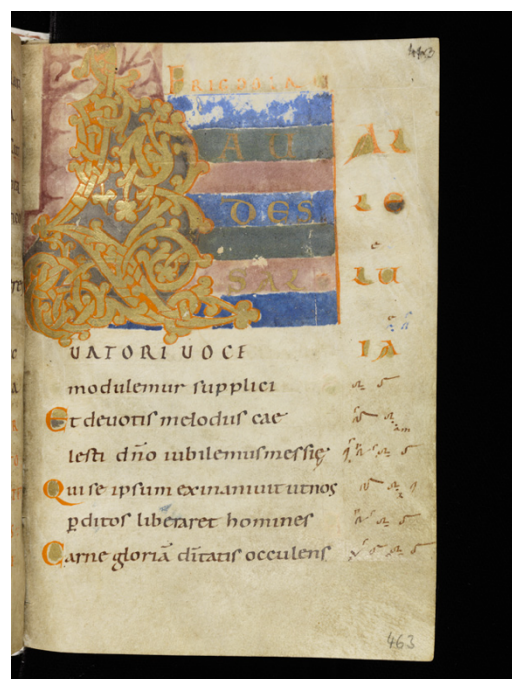 L AU
DES
SAL
UATORI UOCE
modulemur supplici
Et deuotis melodiis cae
lesti dn̄o iubilemus messię
Qui se ipsum exinaniuit ut nos
ꝑditos liberaret homines
Carne gloriā diītatis occulens
AL
LE
LU
IA
463